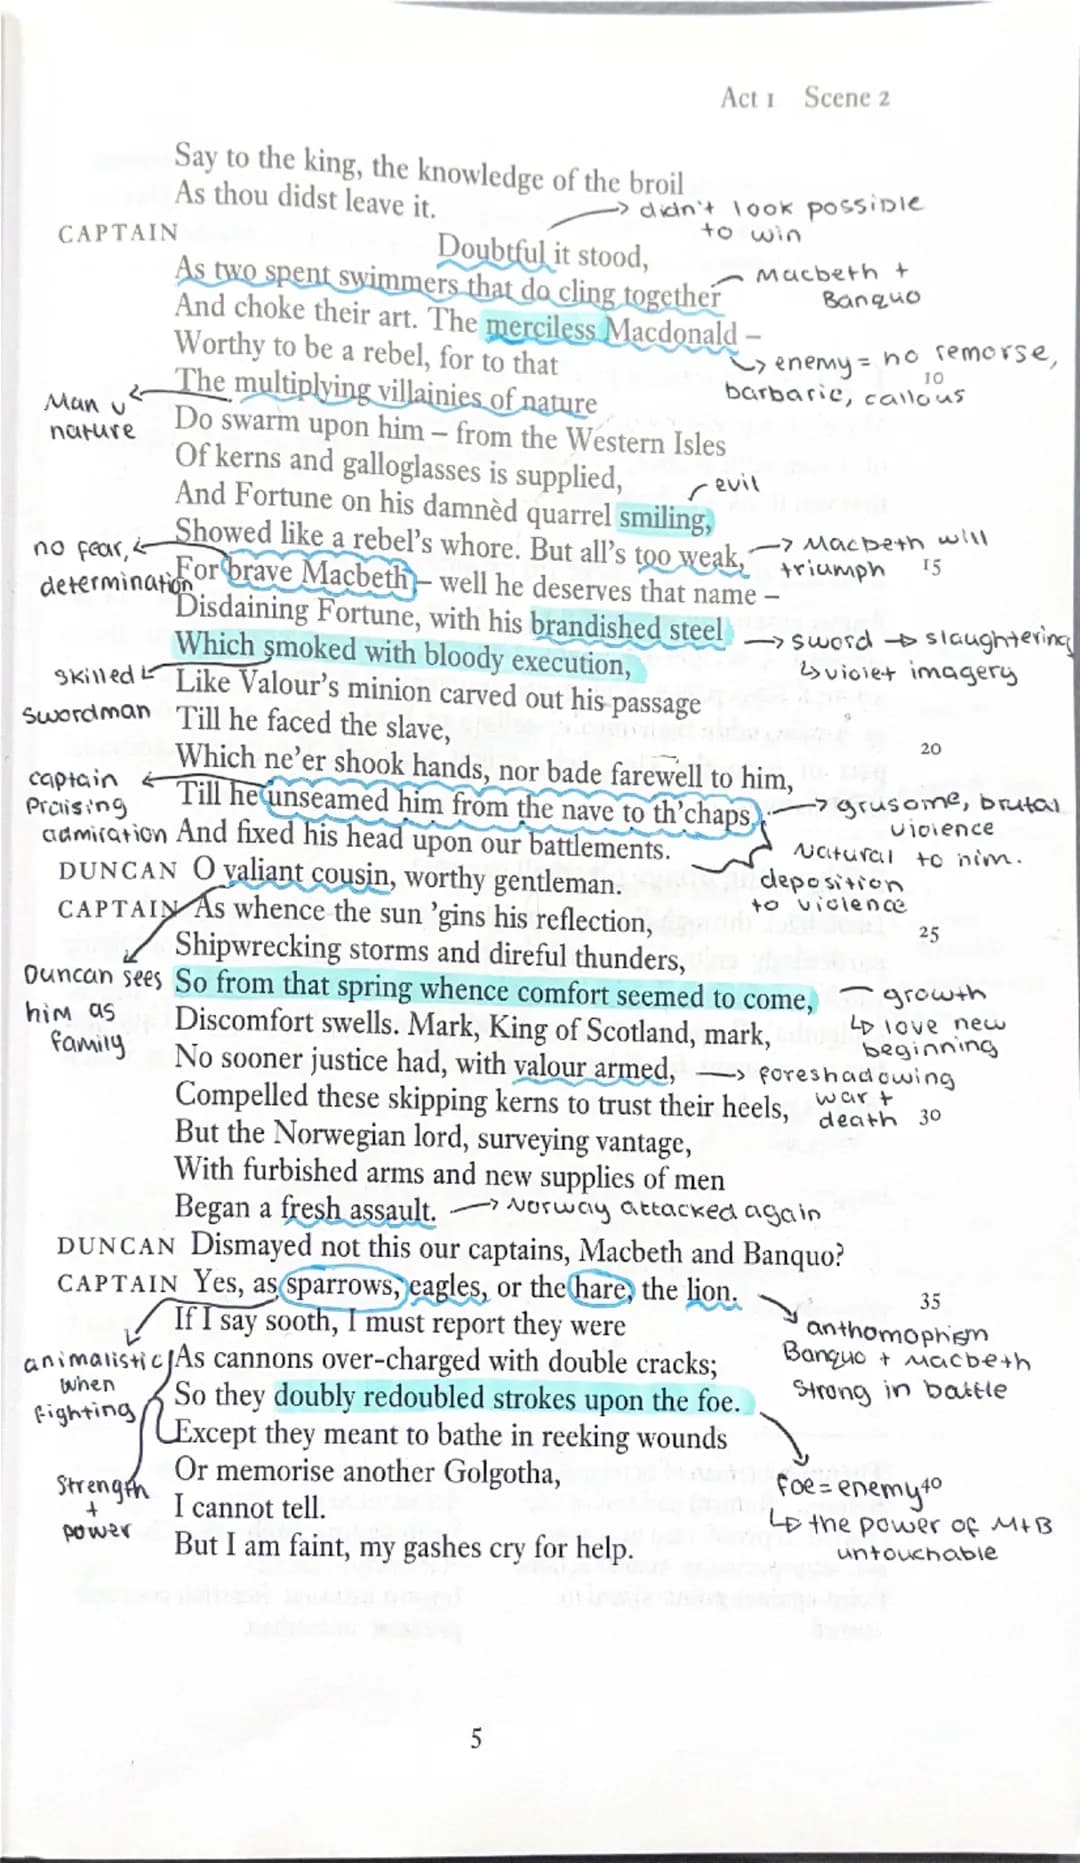 Act 1 Scene 2
Say to the king, the knowledge of the broil
As thou didst leave it.
→ didn't look possible
to win
CAPTAIN
Doubtful it stood,
As two spent swimmers that do cling together
Macbeth +
Banquo
And choke their art. The merciless Macdonald –
Worthy to be a rebel, for to that
→ enemy = no remorse,
barbaric, callous
10
The multiplying villainies of nature
Man v
nature
Do swarm upon him – from the Western Isles
Of kerns and galloglasses is supplied,
evil
And Fortune on his damnèd quarrel smiling,
Showed like a rebel's whore. But all's too weak,
→ Macbeth will
triumph
15
no fear,
determination
For brave Macbeth – well he deserves that name –
Disdaining Fortune, with his brandished steel
→ sword → slaughtering
↳ violet imagery
Which smoked with bloody execution,
skilled
swordman
Like Valour's minion carved out his passage
Till he faced the slave,
20
Which ne'er shook hands, nor bade farewell to him,
captain
Praising
admiration
Till he unseamed him from the nave to th'chaps,
→ grusome, brutal
violence
And fixed his head upon our battlements.
Natural to him.
deposition
to violence
DUNCAN O valiant cousin, worthy gentleman.
CAPTAIN As whence the sun 'gins his reflection,
25
Shipwrecking storms and direful thunders,
Duncan sees
him as
family
So from that spring whence comfort seemed to come,
growth
↳ love new
beginning
Discomfort swells. Mark, King of Scotland, mark,
No sooner justice had, with valour armed,
→ foreshadowing
war +
death
Compelled these skipping kerns to trust their heels,
30
But the Norwegian lord, surveying vantage,
With furbished arms and new supplies of men
Began a fresh assault.
→ Norway attacked again
DUNCAN Dismayed not this our captains, Macbeth and Banquo?
CAPTAIN Yes, as sparrows, eagles, or the hare, the lion.
35
If I say sooth, I must report they were
anthomophism
Banquo + Macbeth
strong in battle
animalistic
when
fighting
As cannons over-charged with double cracks;
So they doubly redoubled strokes upon the foe.
Except they meant to bathe in reeking wounds
Or memorise another Golgotha,
Strength
+
power
foe = enemy
40
↳ the power of M+B
untouchable
I cannot tell.
But I am faint, my gashes cry for help.
5